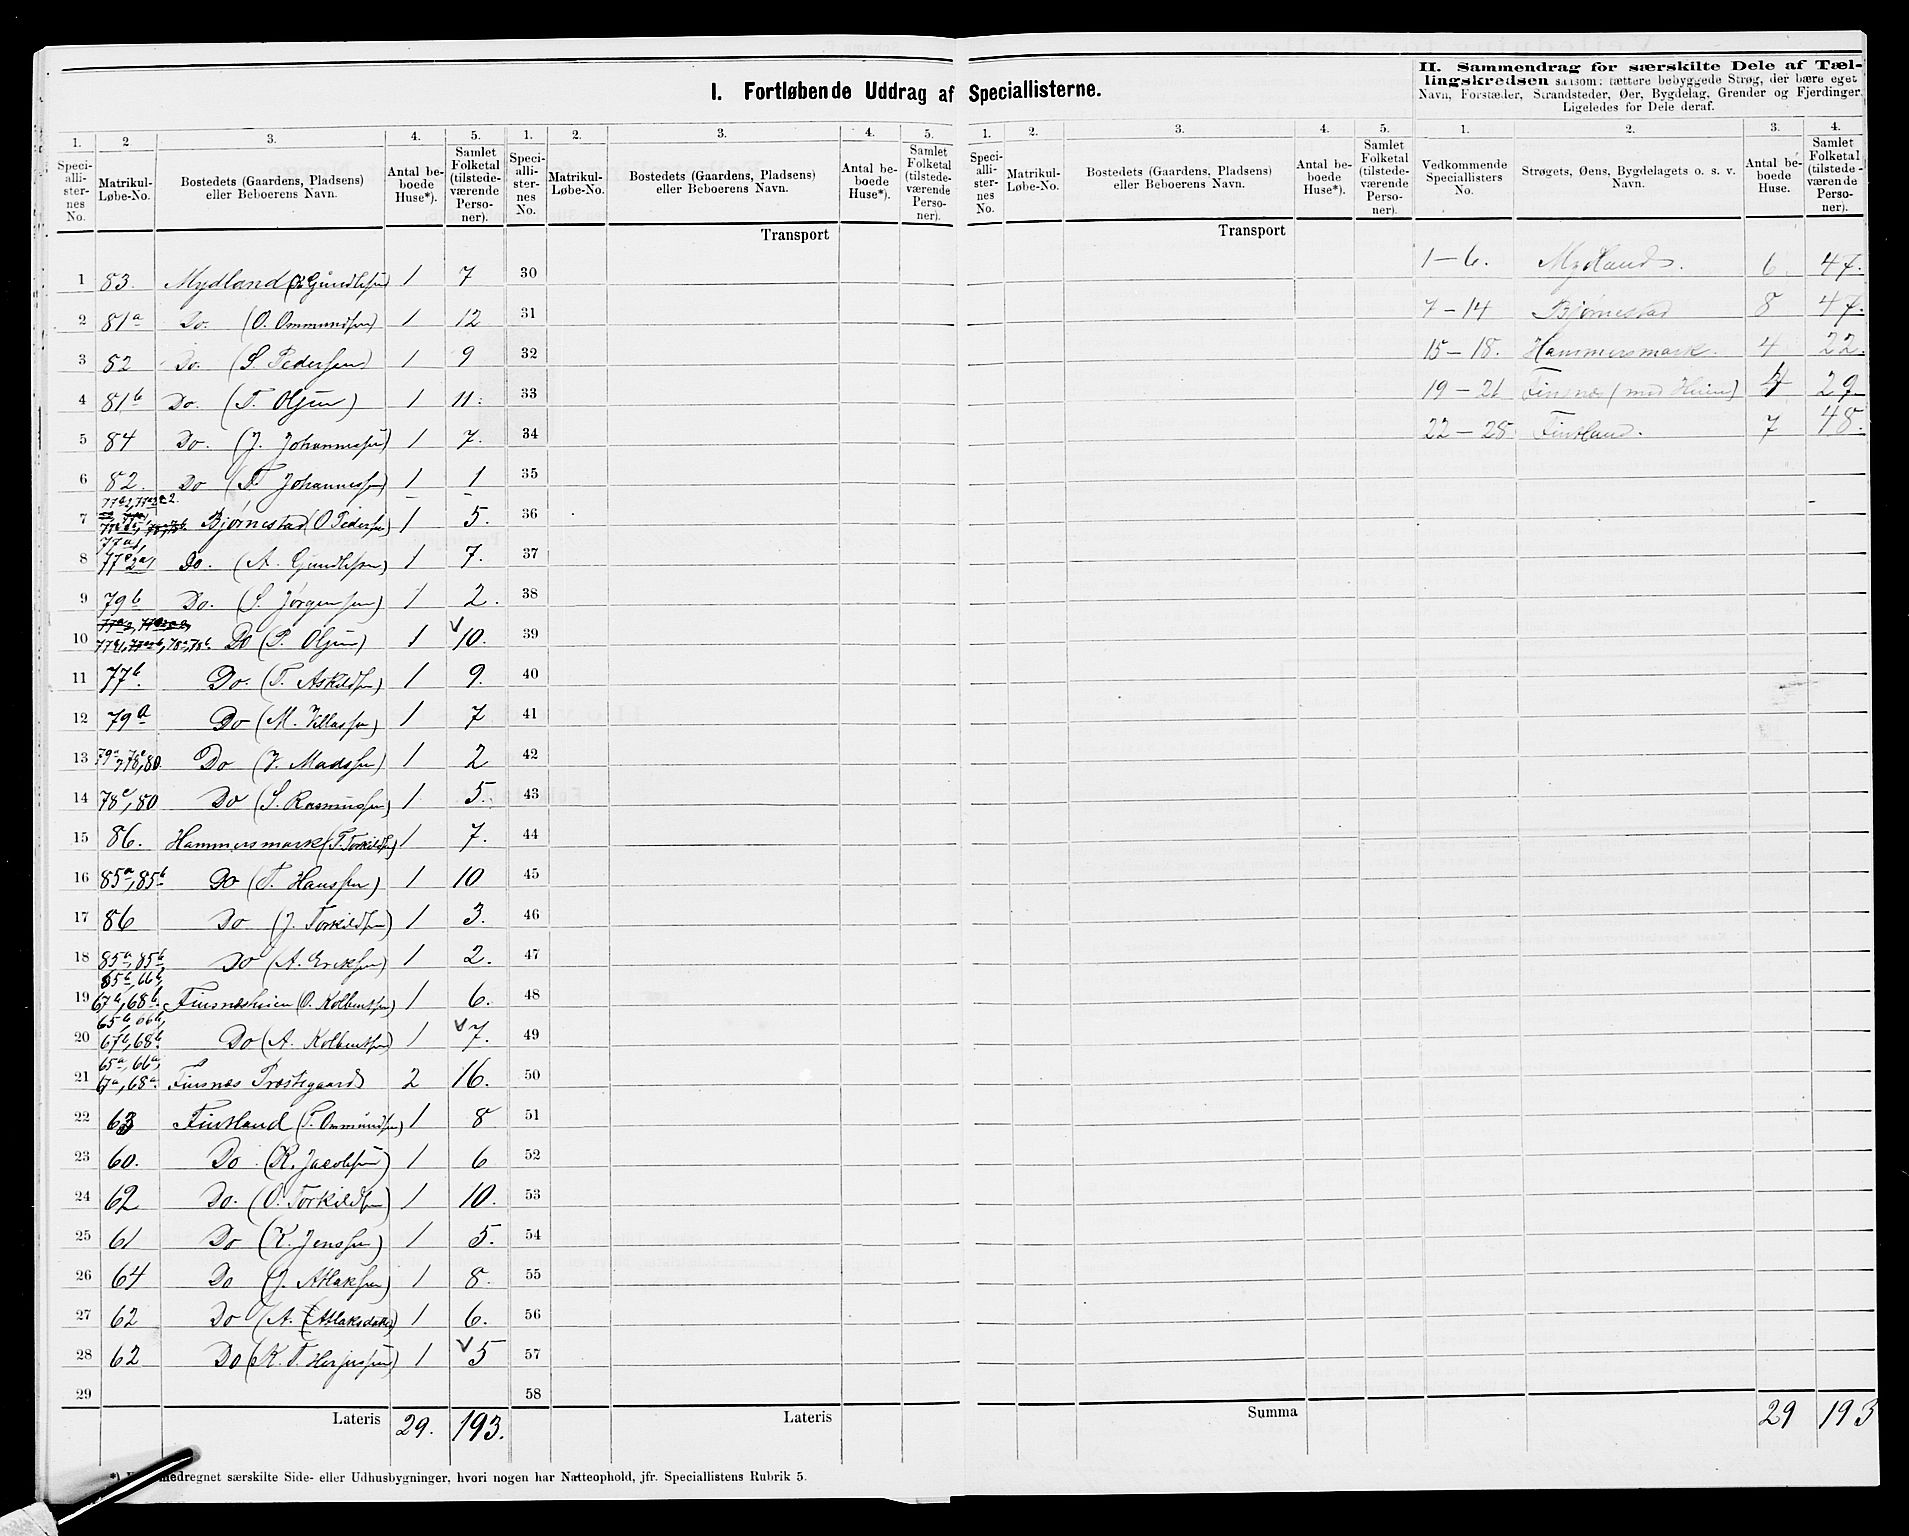 I. Fortløbende Uddrag af Speciallisterne.
II. Sammendrag for særskilte Dele af Tæl-
lingskredsen saasom: tættere bebyggede Strøg, der bære eget
Navn, Forstæder, Strandsteder, Øer, Bygdelag, Grender og Fjerdinger.
Ligeledes for Dele deraf.
1. 2 3. 4. 5. 1. 2. 3. 4. 5. 1. 2. 3. 4. 5. 1. 2. 3. 4.
Speci-alli-ster-nes No. Matrikul-Løbe-No. Bostedets (Gaardens, Pladsens) eller Beboerens Navn. Antal be-boede Huse*). Samlet Folketal (tilstede-værende Perso-ner).
Speci-alli-ster-nes No. Matrikul-Løbe-No. Bostedets (Gaardens, Pladsens) eller Beboerens Navn. Antal be-boede Huse*). Samlet Folketal (tilstede-værende Perso-ner).
Speci-alli-ster-nes No. Matrikul-Løbe-No. Bostedets (Gaardens, Pladsens) eller Beboerens Navn. Antal be-boede Huse*). Samlet Folketal (tilstede-værende Perso-ner).
Vedkommende Speciallisters No. Strøgets, Øens, Bygdelagets o. s. v. Navn. Antal be-boede Huse. Samlet Folketal (tilstede-værende Perso-ner).
Transport Transport
1 83. Mydland (Gundlesen) 1 7 30
2 81a Do. (O. Ommundsen) 1 12 31
3 82 Do. (S. Pedersen) 1 9 32
4 81b Do. (T. Olsen) 1 11. 33
5 84 Do. (J. Johannessen) 1 7. 34
6 82. Do (T. Johannessen) 1 1 35
7 Bjørnestad (O Pedersen) 1 5. 36
8 77a1, Do. (A. Gundlesen) 1 7. 37
9 79b Do. (S. Jørgensen) 1 2. 38
10 78a, 78b. Do (P. Olsen) 1 v 10. 39
11 77b. Do. (T. Askildsen) 1 9. 40
12 79a Do (M. Villassen) 1 7 41
13 80 Do (J. Madssen) 1 2 42
14 78c, 80 Do (S. Rasmussen) 1 5. 43
15 86. Hammersmark (T. Torkildsen) 1 7. 44
16 85a, 85b Do (T. Hanssen) 1 10 45
17 86 Do (J. Torkildsen) 1 3. 46
18 85a, 85b Do (A. Eriksen) 1 2. 47
19 65b, 66b, 67b, 68b. Finsnæsheien (O. Kolbentsen) 1 6. 48
20 65b, 66b, 67b, 68b. Do (A. Kolbentsen) 1 v 7. 49
21 65a, 66a, 67a, 68a. Finsnæs Præstegaard 2 16. 50
22 63 Fintland (T. Ommundsen) 1 8 51
23 60. Do (K. Jacobsen) 1 6 52
24 62 Do. (O. Torkildsen) 1 10. 53
25 61 Do (K. Jenssen) 1 5. 54
26 64 Do (J. Atlaksen) 1 8. 55
27 62 Do (A. Atlaksdatter) 1 6. 56
28 62 Do (K. T. ) 1 v 5 57
29 58
Lateris 29. 193. Lateris Summa 29 193
1–6. Mydland. 6 47.
7–14 Bjørnestad 8 47.
15–18. Hammersmark. 4 22.
19–21 Finsnæs (med Heien) 4 29.
22–28. Fintland. 7 48.
medregnet særskilte Side- eller Udhusbygninger, hvori nogen har Natteophold, jfr. Speciallistens Rubrik 5.